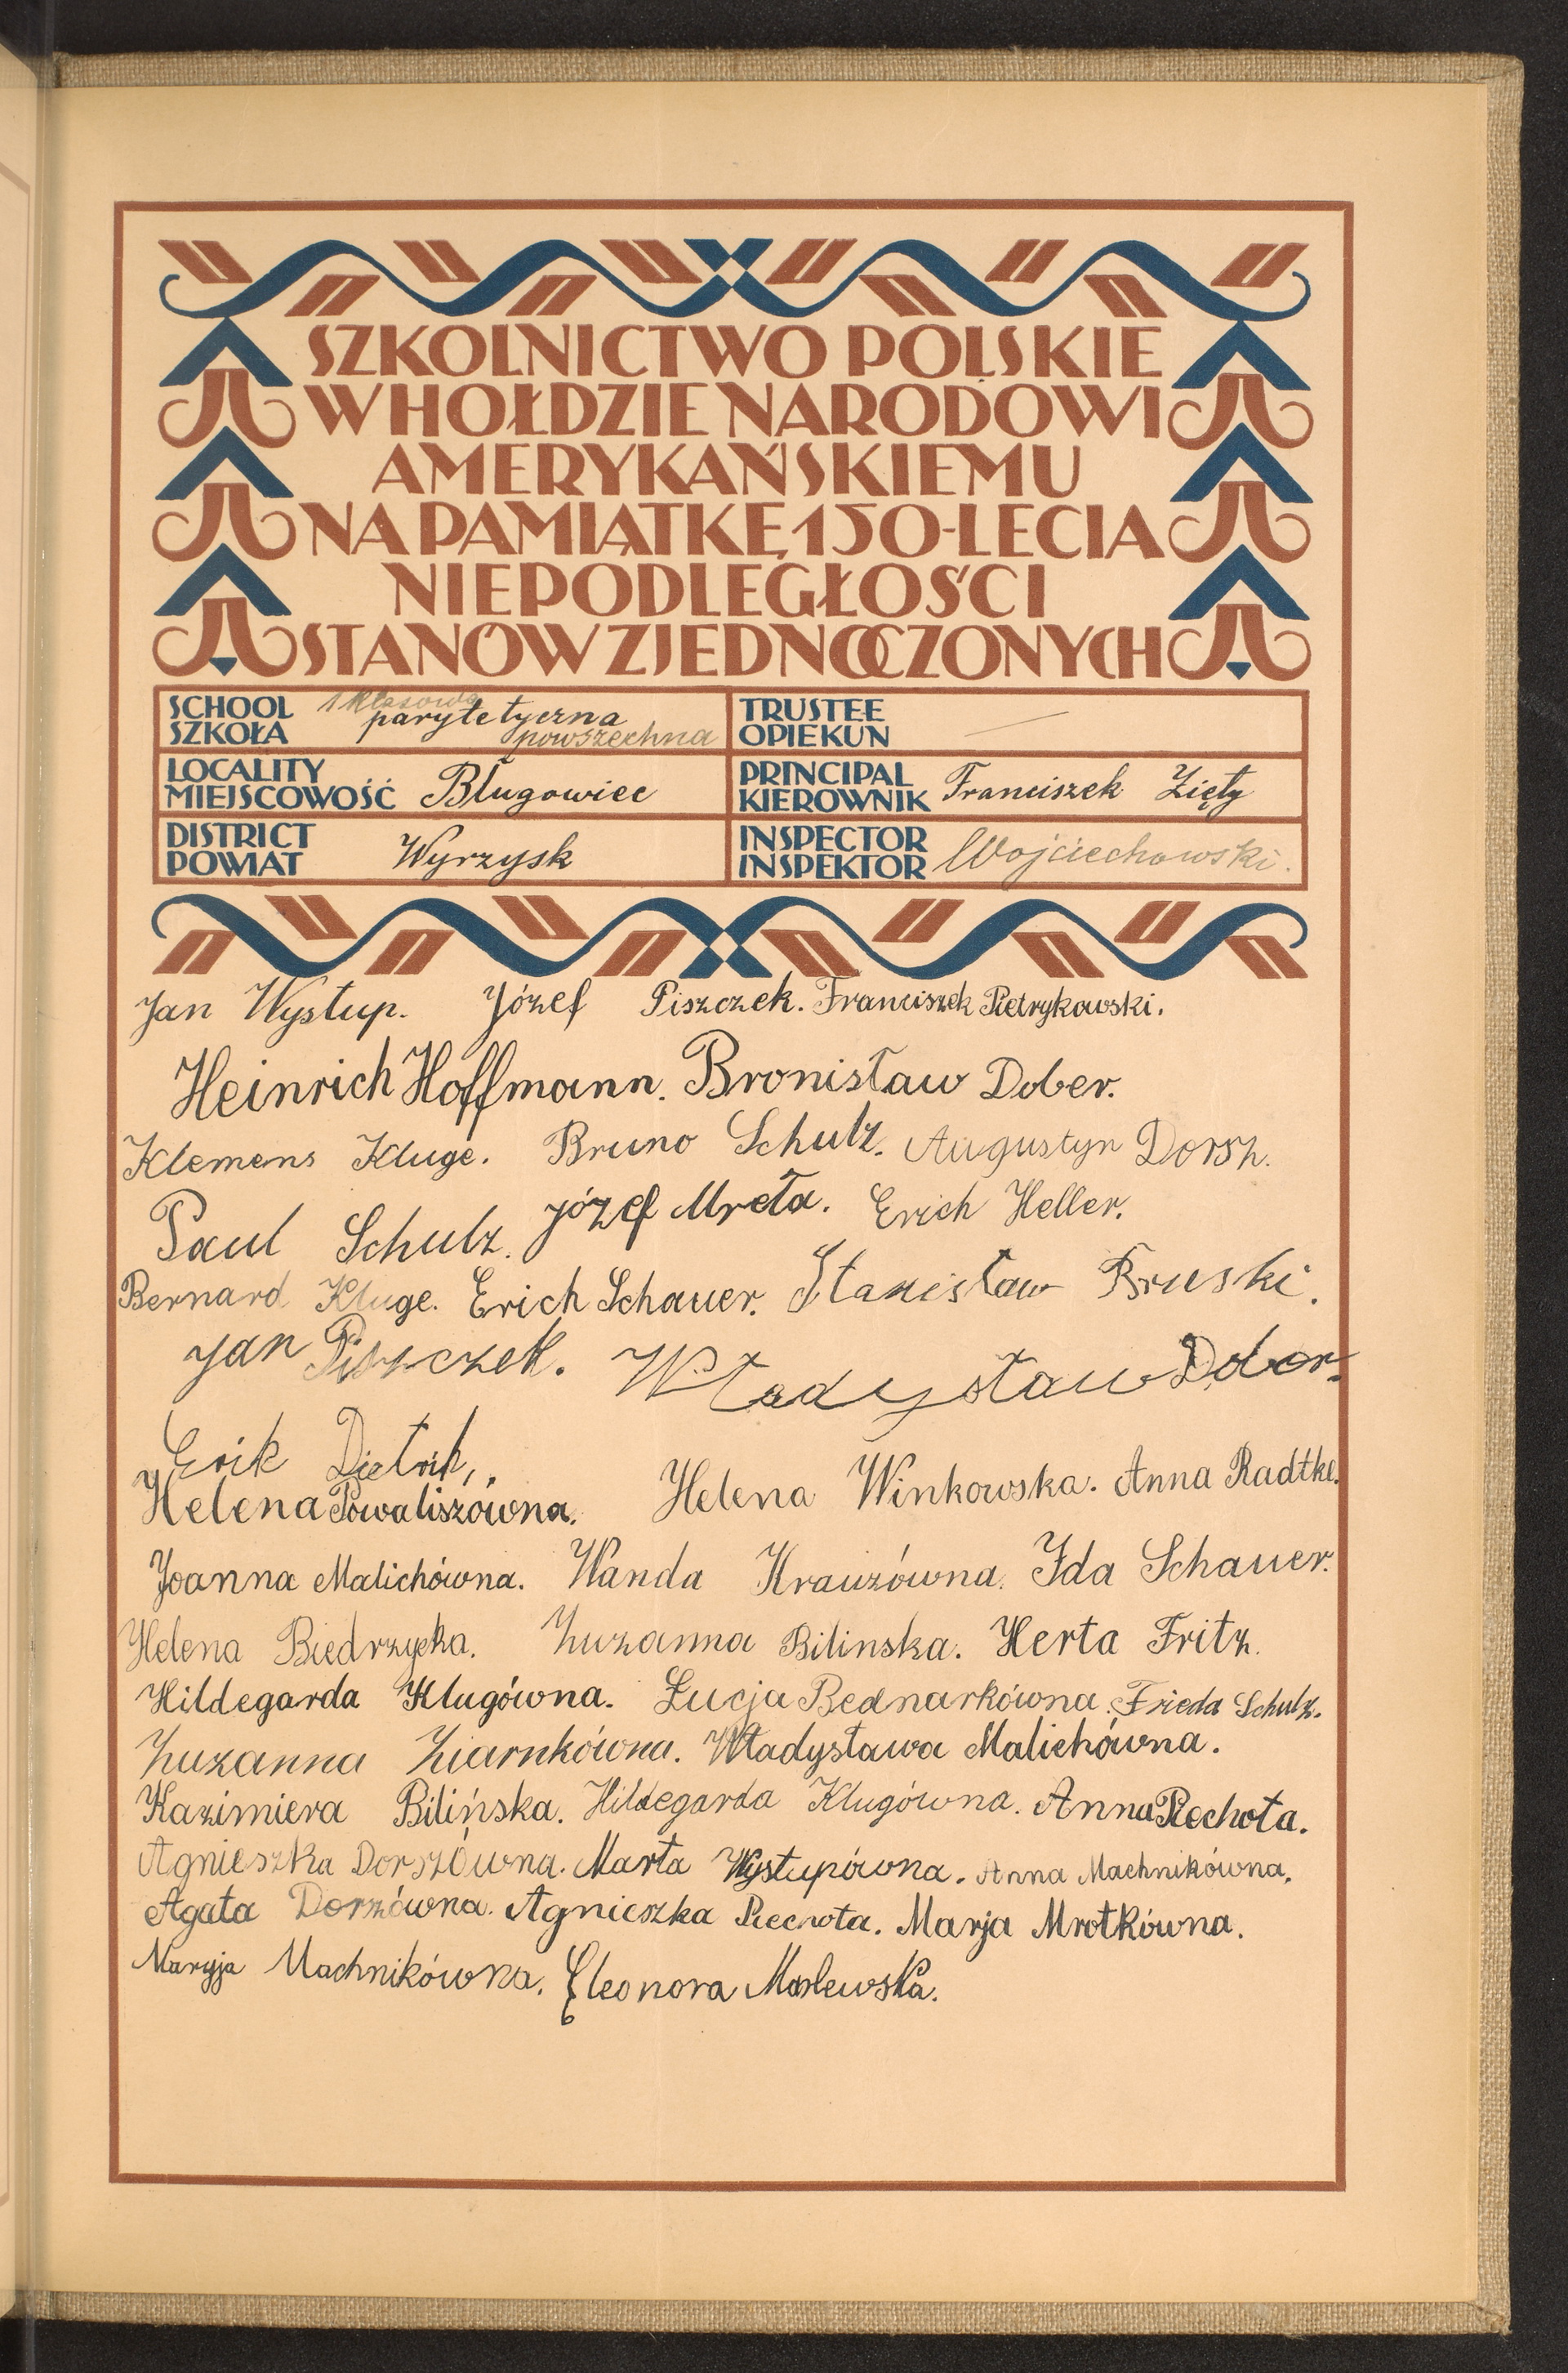 SZKOLNICTWO POLSKIE
W HOŁDZIE NARODOWI
AMERYKAŃSKIEMU
NA PAMIĄTKĘ 150-LECIA
NIEPODLEGŁOŚCI
STANÓW ZJEDNOCZONYCH
SCHOOL
SZKOŁA
1 klasowa
parytetyczna
powszechna
TRUSTEE
OPIEKUN
LOCALITY
MIEJSCOWOŚĆ
Bługowiec
PRINCIPAL
KIEROWNIK
Franciszek Zięty
DISTRICT
POWIAT
Wyrzysk
INSPECTOR
INSPEKTOR
Wojciechowski.
Jan Wystup. Józef Piszczek. Franciszek Pietrykowski.
Heinrich Hoffmann. Bronisław Dober.
Klemens Kluge. Bruno Schulz. Augustyn Dorsz.
Paul Schulz. Józef Mreła. Erich Heller.
Bernard Kluge. Erich Schauer. Stanisław Bruski.
Jan Piszczek. Władysław Dober.
Erik Dietrik.
Helena Powaliszówna. Helena Winkowska. Anna Radtke.
Joanna Malichówna. Wanda Krauzówna. Ida Schauer.
Helena Biedrzycka. Zuzanna Bilinska. Herta Fritz.
Hildegarda Klugówna. Łucja Bednarkówna. Frieda Schulz.
Zuzanna Ziarnkówna. Władysława Malichówna.
Kazimiera Bilińska. Hildegarda Klugówna. Anna Piechota.
Agnieszka Dorszówna. Marta Wystupówna. Anna Machnikówna.
Agata Dorzówna. Agnieszka Piechota. Marja Mrotkówna.
Maryja Machnikówna. Eleonora Maslewska.